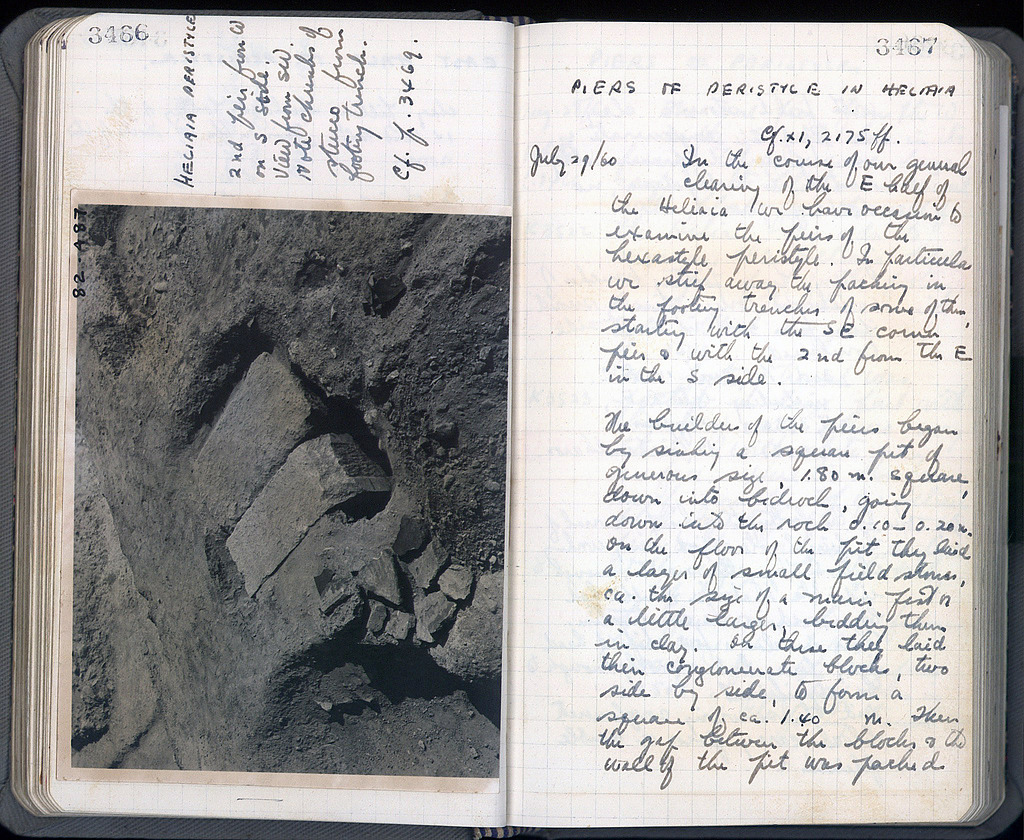 3466
HELIAIA PERISTYLE
2nd pier from W
on S side.
View from SW.
Note chunks of
stucco from
footing trench.
Cf. p. 3469.
82-487
3467
PIERS OF PERISTYLE IN HELIAIA
Cf. XI, 2175 ff.
July 29/60 In the course of our general
clearing of the E half of
the Heliaia we have occasion to
examine the piers of the
hexastyle peristyle. In particular
we strip away the packing in
the footing trenches of some of them,
starting with the SE corner
pier & with the 2nd from the E
in the S side.
The builders of the piers began
by sinking a square pit of
generous size, 1.80 m. square,
down into bedrock, going
down into the rock 0.10-0.20 m.
On the floor of the pit they laid
a layer of small field stones,
ca. the size of a man's fist or
a little larger, bedding them
in clay. On these they laid
their conglomerate blocks, two
side by side, to form a
square of ca. 1.40 m. Then
the gap between the blocks & the
wall of the pit was packed